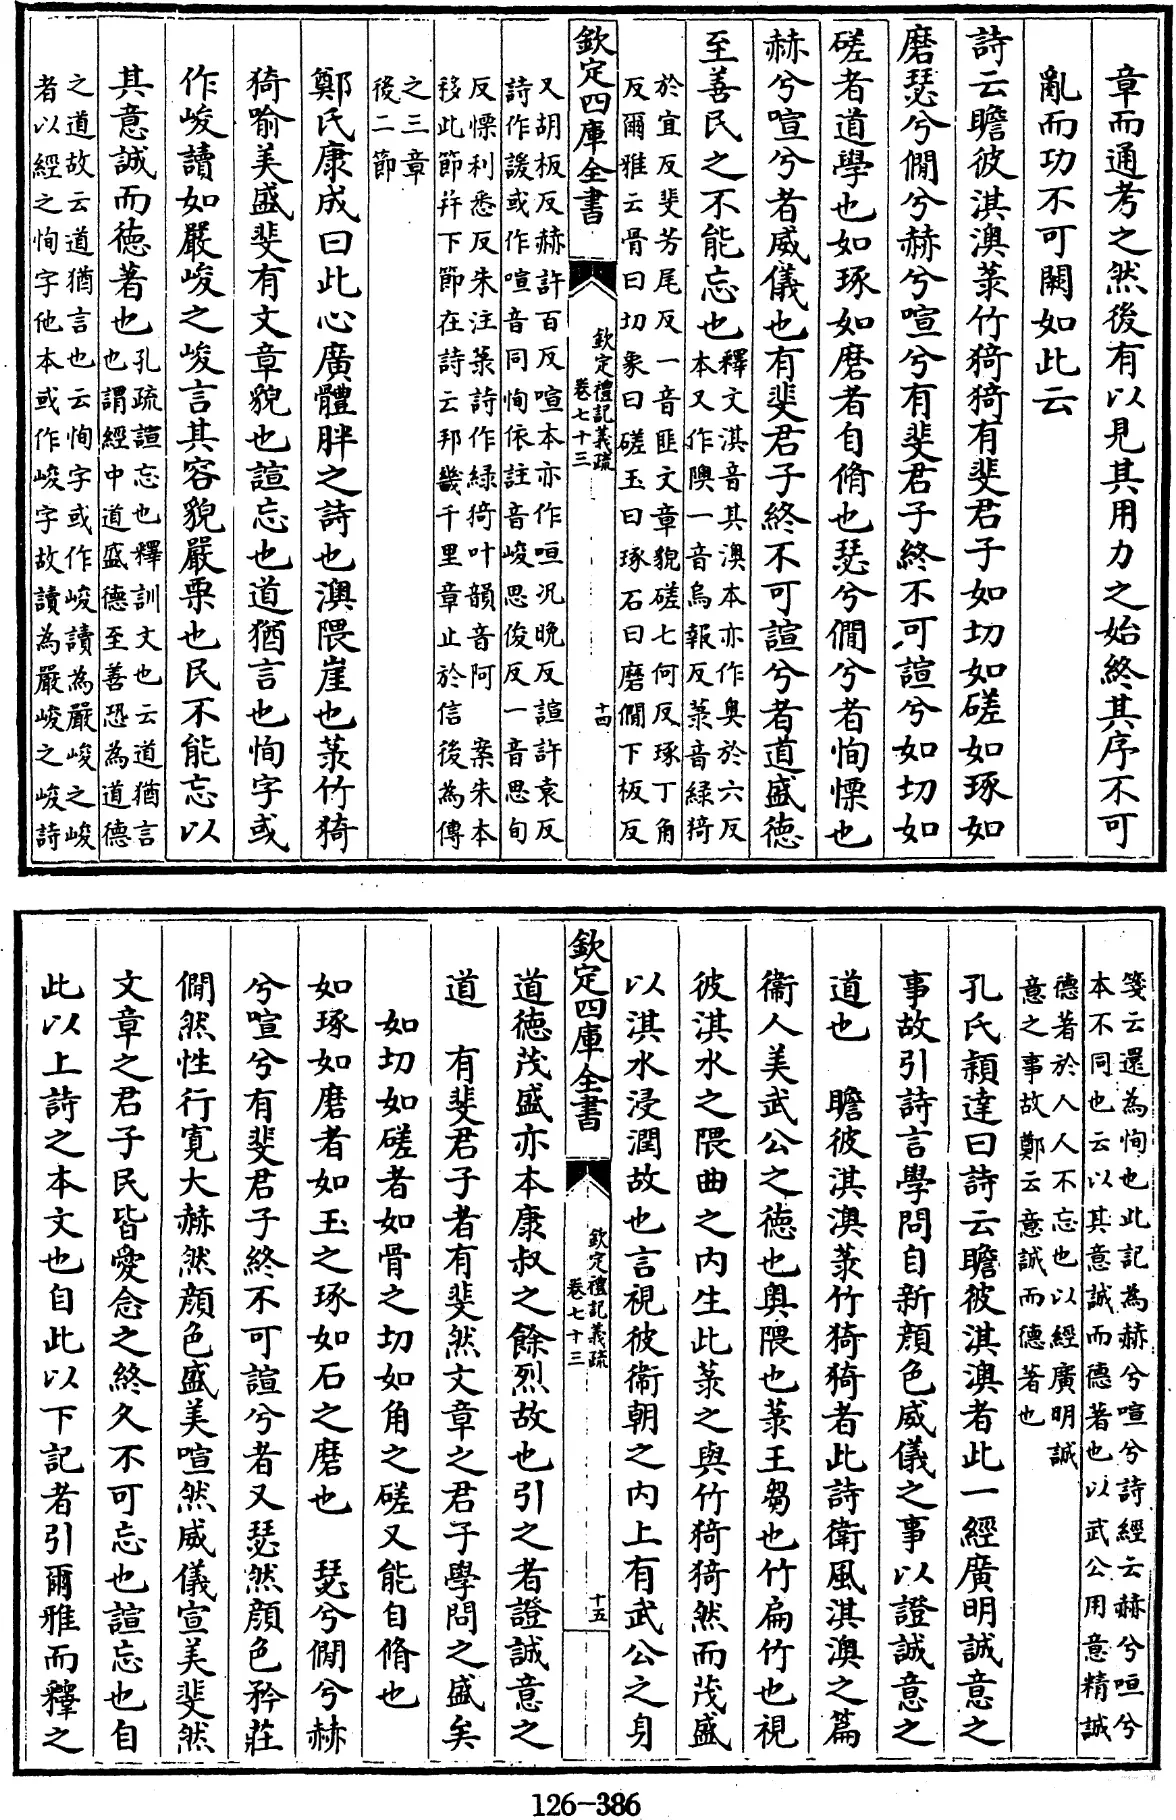 章而通考之然後有以見其用力之始終其序不可
亂而功不可闕如此云
詩云瞻彼淇澳菉竹猗猗有斐君子如切如磋如琢如
磨瑟兮僩兮赫兮喧兮有斐君子終不可諠兮如切如
磋者道學也如琢如磨者自脩也瑟兮僩兮者恂慄也
赫兮喧兮者威儀也有斐君子終不可諠兮者道盛德
至善民之不能忘也
釋文淇音其澳本亦作奧於六反
本又作隩一音烏報反菉音緑猗
於宜反斐芳尾反一音匪文章貌磋七何反琢丁角
反爾雅云骨曰切象曰磋玉曰琢石曰磨僩下板反
欽定四庫全書
欽定禮記義疏
卷七十三
十四
又胡板反赫許百反喧本亦作咺況晚反諠許袁反
詩作諼或作喧音同恂依註音峻思俊反一音思旬
反慄利悉反朱注菉詩作緑猗叶韻音阿 案朱本
移此節幷下節在詩云邦畿千里章止於信後為傳
之三章
後二節
鄭氏康成曰此心廣體胖之詩也澳隈崖也菉竹猗
猗喻美盛斐有文章貌也諠忘也道猶言也恂字或
作峻讀如嚴峻之峻言其容貌嚴栗也民不能忘以
其意誠而德著也
孔疏諠忘也釋訓文也云道猶言
也謂經中道盛德至善恐為道德
之道故云道猶言也云恂字或作峻讀為嚴峻之峻
者以經之恂字他本或作峻字故讀為嚴峻之峻詩
箋云還為恂也此記為赫兮喧兮詩經云赫兮咺兮
本不同也云以其意誠而德著也以武公用意精誠
德著於人人不忘也以經廣明誠
意之事故鄭云意誠而德著也
孔氏穎達曰詩云瞻彼淇澳者此一經廣明誠意之
事故引詩言學問自新顔色威儀之事以證誠意之
道也 瞻彼淇澳菉竹猗猗者此詩衛風淇澳之篇
衞人美武公之德也奧隈也菉王芻也竹扁竹也視
彼淇水之隈曲之內生此菉之與竹猗猗然而茂盛
以淇水浸潤故也言視彼衞朝之內上有武公之身
欽定四庫全書
欽定禮記義疏
卷七十三
十五
道德茂盛亦本康叔之餘烈故也引之者證誠意之
道 有斐君子者有斐然文章之君子學問之盛矣
如切如磋者如骨之切如角之磋又能自脩也
如琢如磨者如玉之琢如石之磨也 瑟兮僩兮赫
兮喧兮有斐君子終不可諠兮者又瑟然顔色矜莊
僩然性行寛大赫然顔色盛美喧然威儀宣美斐然
文章之君子民皆愛念之終久不可忘也諠忘也自
此以上詩之本文也自此以下記者引爾雅而釋之
126-386